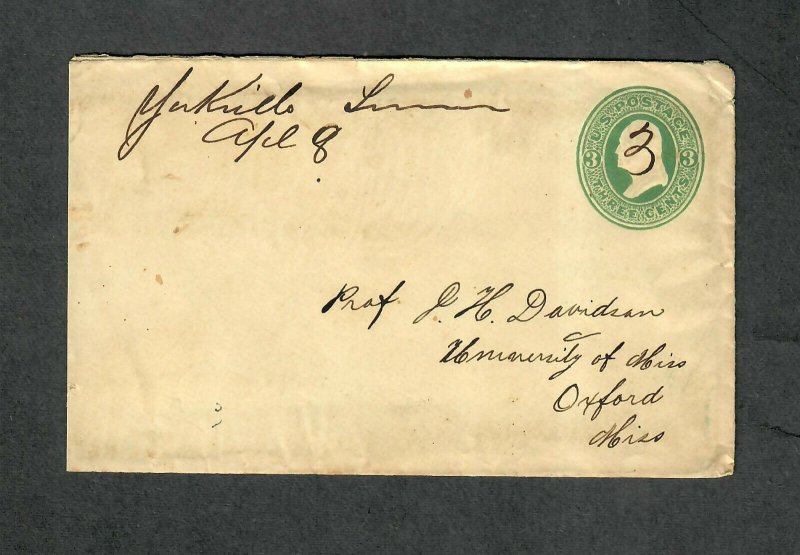 Yorkville Tenn
Apl 8
U.S. POSTAGE
3 3 3
THREE CENTS
Prof J. H. Davidson
University of Miss
Oxford
Miss